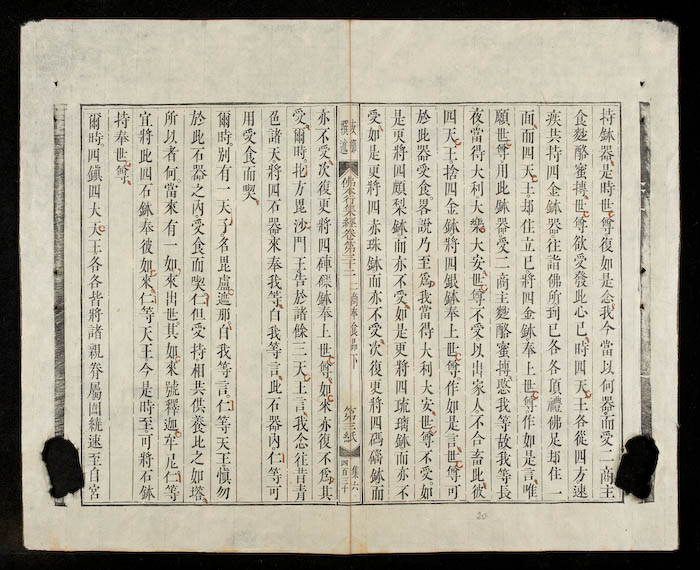 持鉢器是時世尊復如是念我今當以何器而受二商主
食麨酪蜜摶世尊欲受發此心已時四天王各從四方速
疾共持四金鉢器往詣佛所到已各各頂禮佛足却住一
面而四天王却住立已將四金鉢奉上世尊作如是言唯
願世尊用此鉢器受二商主麨酪蜜摶愍我等故我等長
夜當得大利大樂大安世尊不受以出家人不合畜此彼
四天王捨四金鉢將四銀鉢奉上世尊作如是言世尊可
於此器受食畧說乃至爲我當得大利大安世尊不受如
是更將四頗梨鉢而亦不受如是更將四琉璃鉢而亦不
受如是更將四赤珠鉢而亦不受次復更將四碼碯鉢而
佛本行集經卷第三十二 二商奉食品下 第三紙
集六
四百三十
亦不受次復更將四硨磲鉢奉上世尊如來亦復不爲其
受爾時北方毘沙門王告於諸餘三天王言我念往昔青
色諸天將四石器來奉我等白我等言此石器內仁等可
用受食而喫
爾時別有一天子名毘盧遮那白我等言仁等天王愼勿
於此石器之內受食而喫仁但受持相共供養比之如塔
所以者何當來有一如來出世其如來號釋迦牟尼仁等
宜將此四石鉢奉彼如來仁等天王今是時至可將石鉢
持奉世尊
爾時四鎮四大天王各各皆將諸親眷屬圍繞速至自宮
20